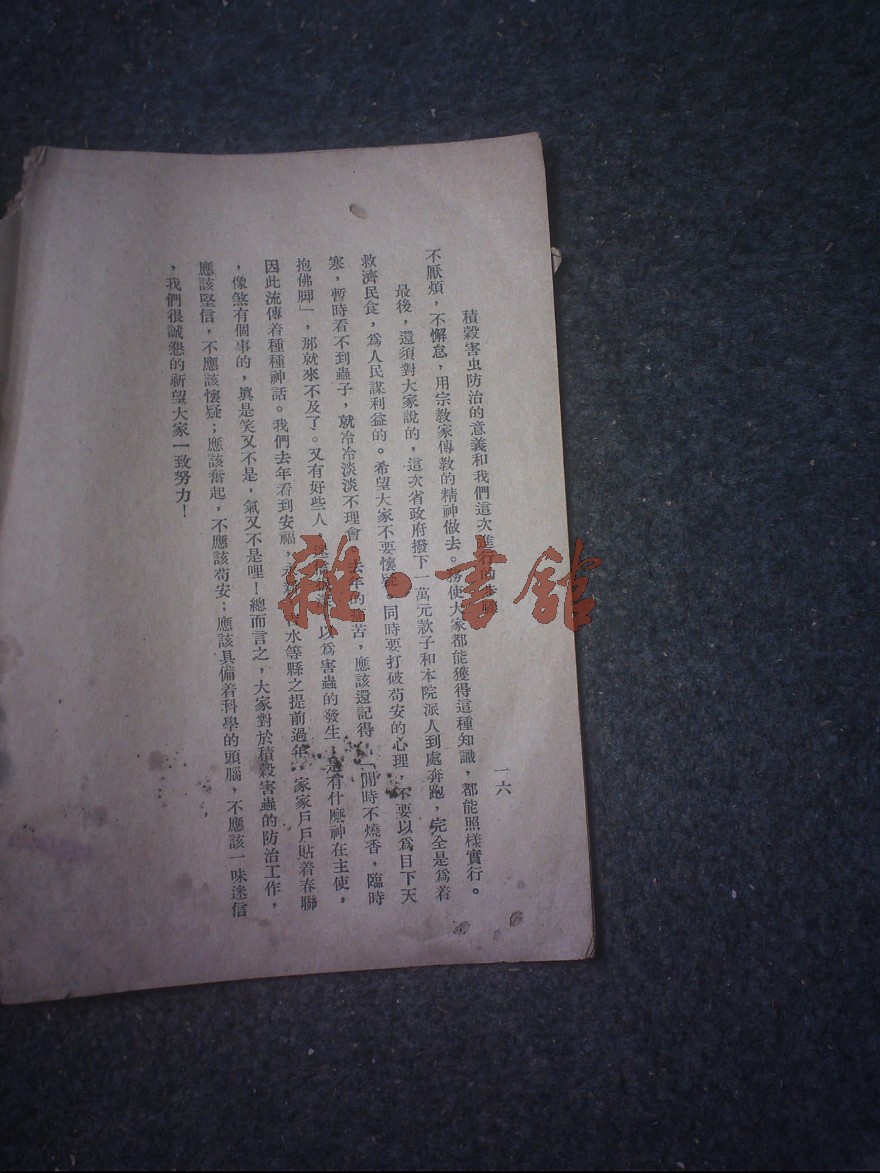 積穀害虫防治的意義和我們這次進行的步驟
一六
不厭煩，不懈怠，用宗教家傳教的精神做去。務使大家都能獲得這種知識，都能照樣實行。
最後，還須對大家說的，這次省政府撥下一萬元款子和本院派人到處奔跑，完全是爲着
救濟民食，爲人民謀利益的。希望大家不要懷疑，同時要打破苟安的心理，不要以爲目下天
寒，暫時看不到蟲子，就冷冷淡淡不理會，去年的痛苦，應該還記得，「閒時不燒香，臨時
抱佛脚」，那就來不及了。又有好些人，以爲害蟲的發生，是有什麽神在主使，
因此流傳着種種神話。我們去年看到安福，永新，吉水等縣之提前過年，家家戶戶貼着春聯
，像煞有個事的，眞是笑又不是，氣又不是哩！總而言之，大家對於積穀害蟲的防治工作，
應該堅信，不應該懷疑；應該奮起，不應該苟安；應該具備着科學的頭腦，不應該一味迷信
，我們很誠懇的祈望大家一致努力！
雜·書館